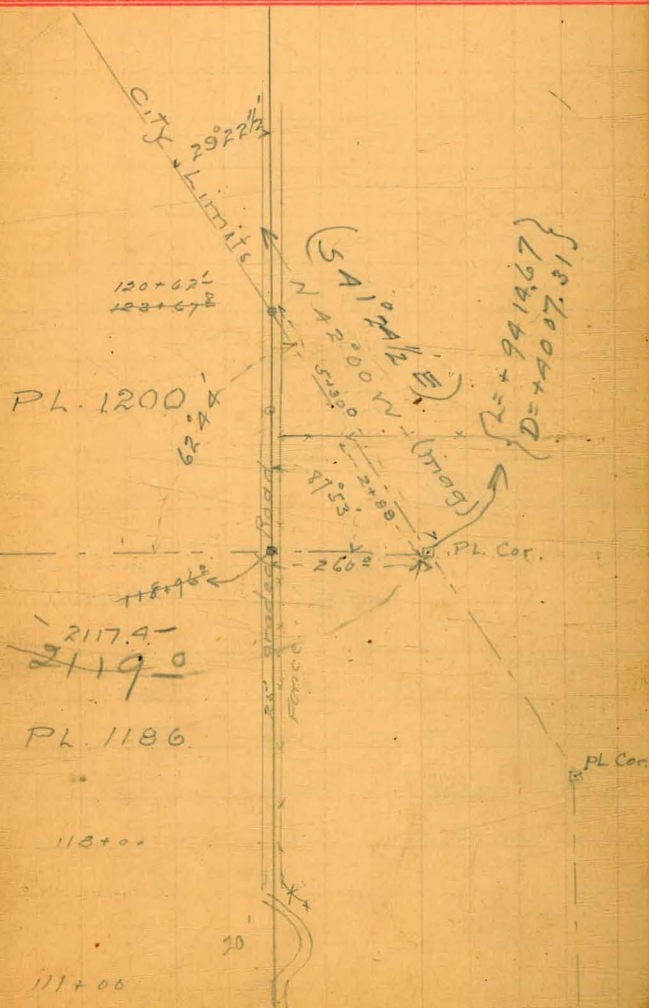 City Limits
29°22½'
120+62'
123+67²
(S 41°24½' E)
N 42°00 W (mag)
{L=+9414.67}
{D=+4007.31}
PL. 1200
62°44'
2+88
87°53'
PL. Cor.
260⁰
118+96⁰
2117.4
2119⁰
25' Graded Road
Fence
PL. 1186
PL Cor.
113+00
20'
111+00